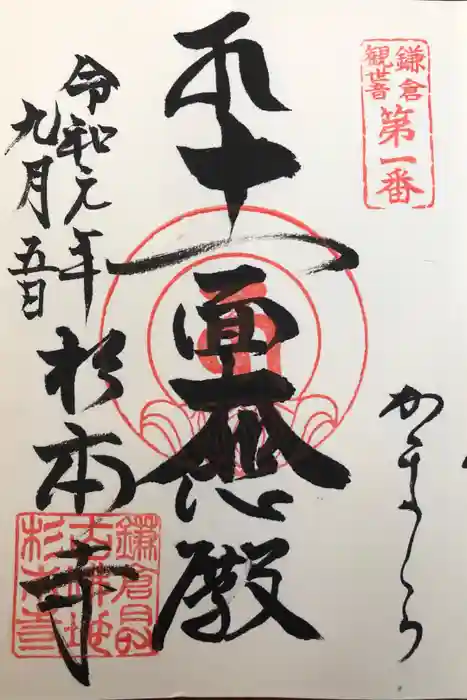 鎌倉
観世音
第一番
かまくら
十一面大悲殿
令和元年
九月五日
杉本寺
鎌倉
杉本寺